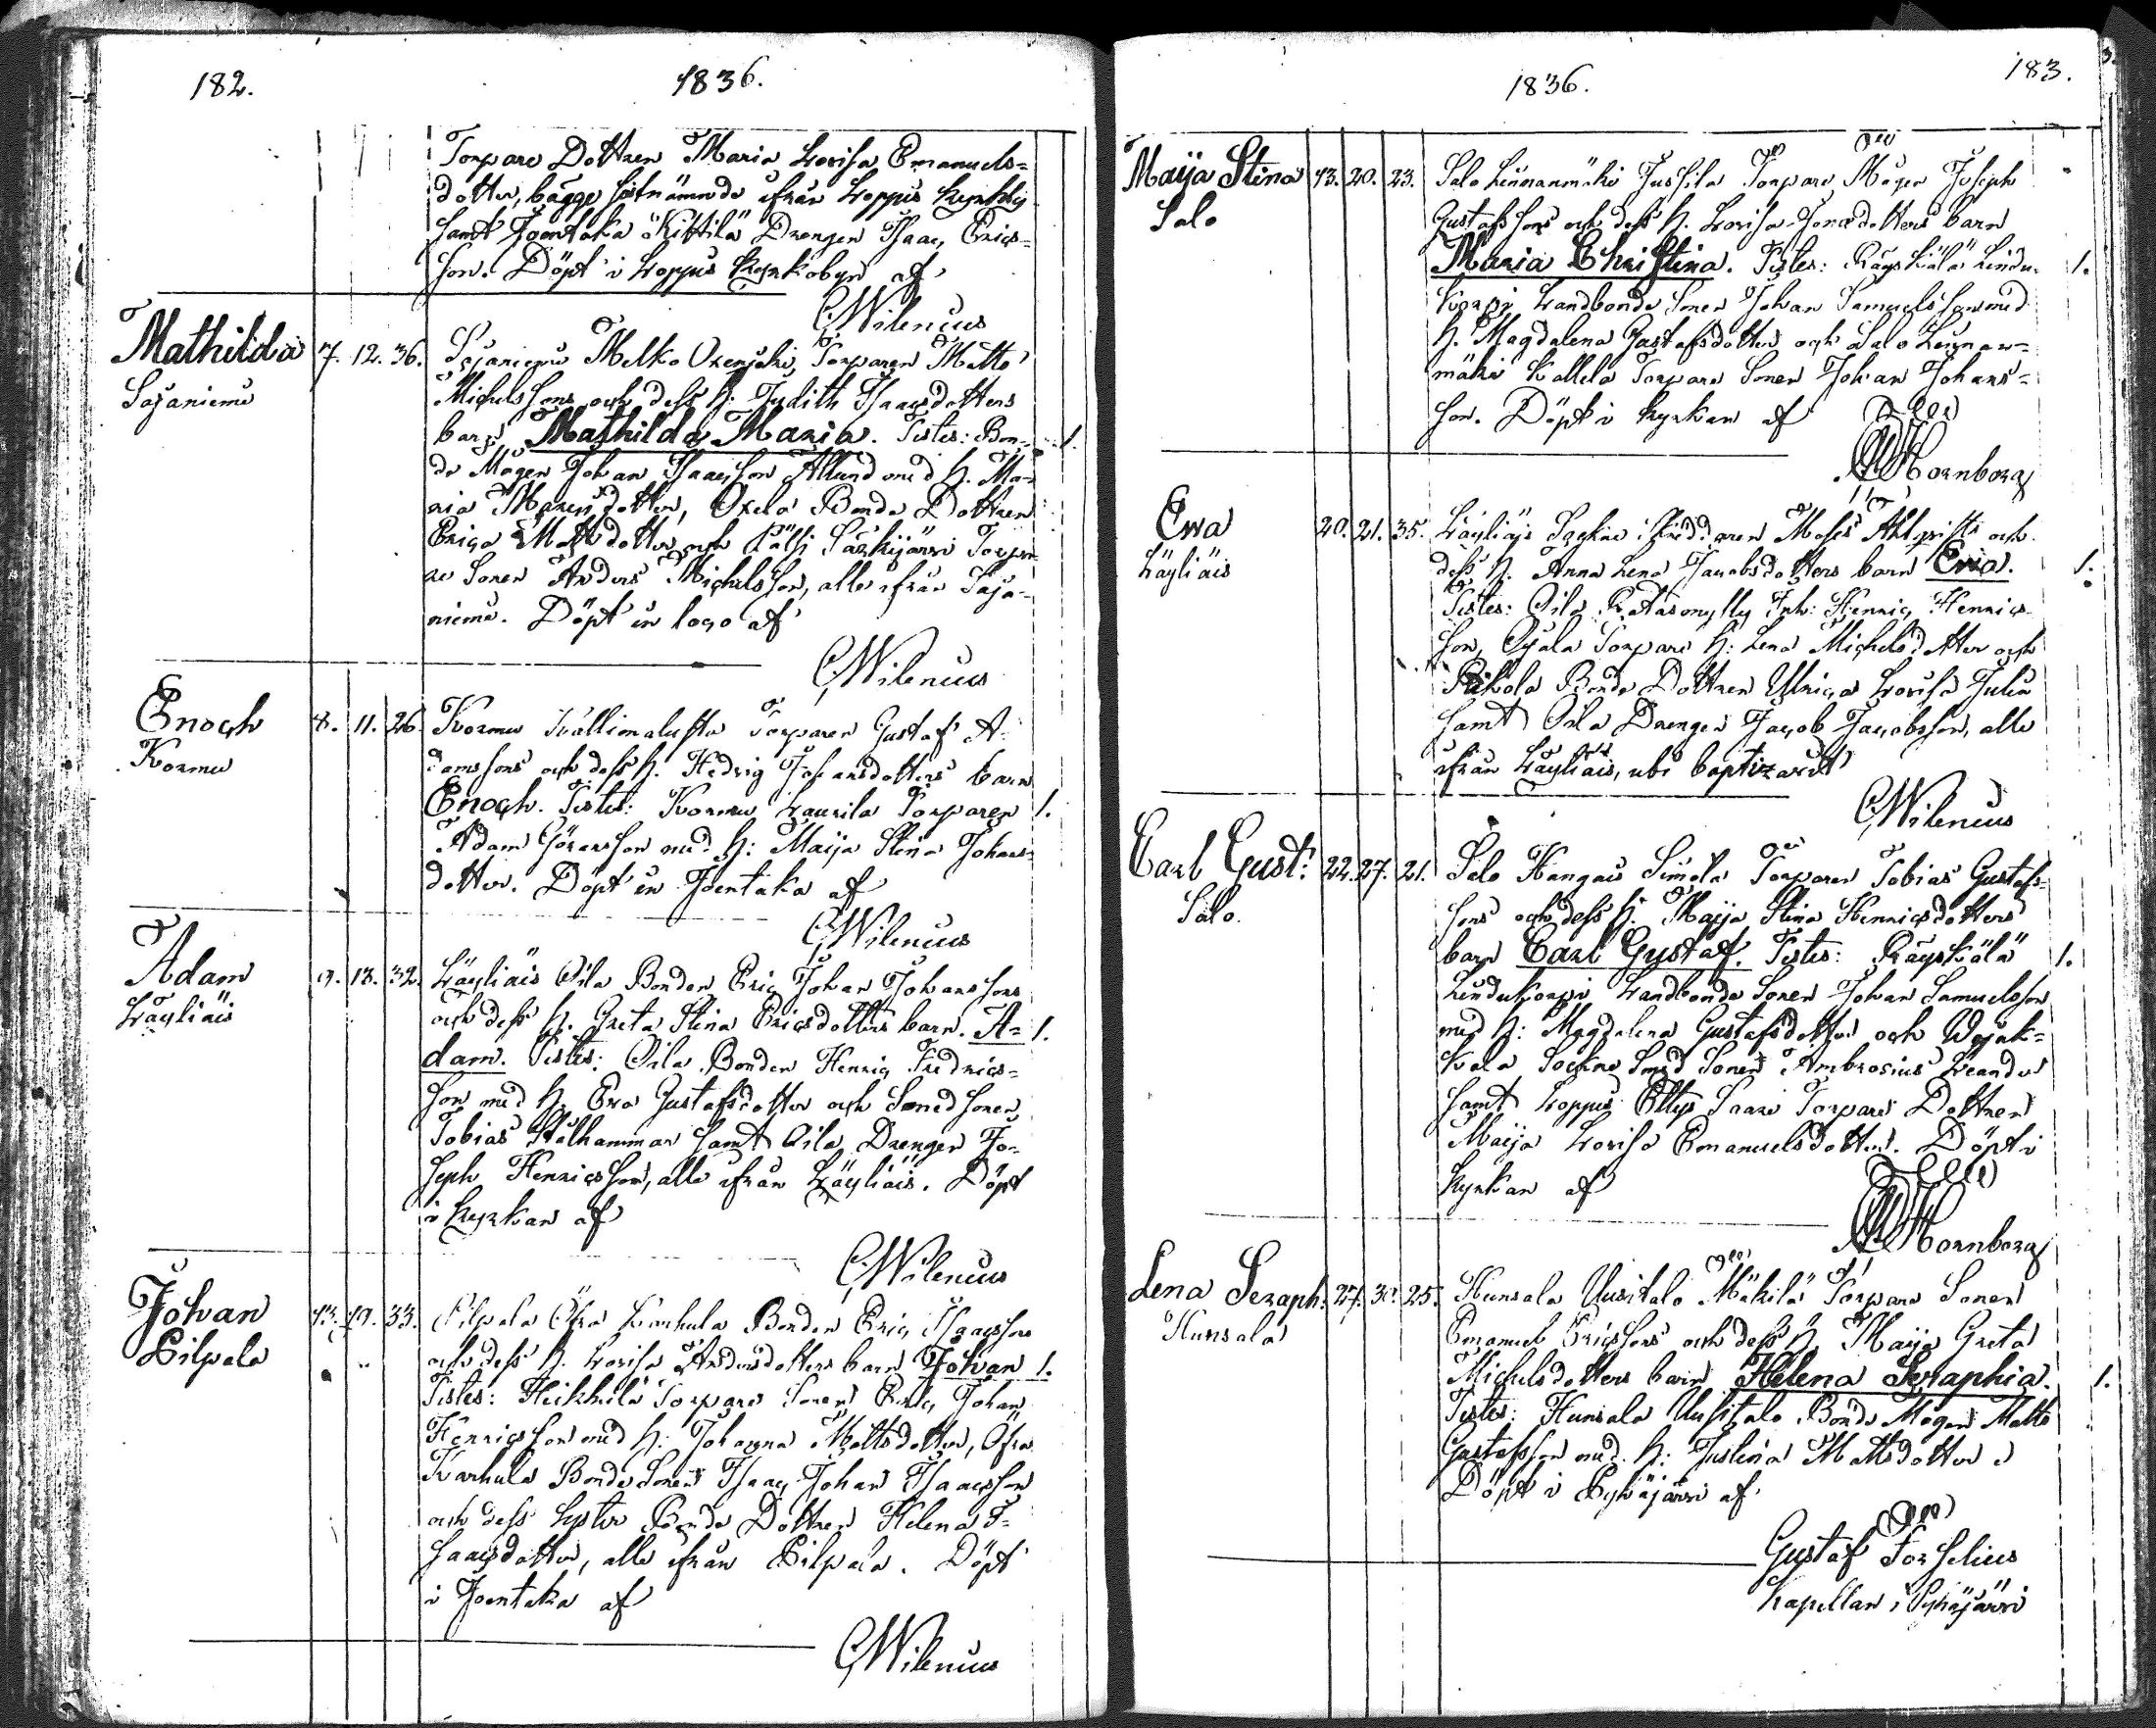 182. 1836.
Torpare Dottren Maria Lovisa Emanuels=
dotter, bägge sistnämnde ifrån Loppis Kyrkby
samt Joentaka Kittilä Drengen Isaac Erics=
son. Döpt i Loppis Kyrkobyn af
CWilenius
Mathilda 7. 12. 36. Sajaniemi Melko Torparen Matts
Sajaniemi
Michelssons och dess h. Judith Isaacsdotters
barn Mathilda Maria. Testes: Bon= 1.
de Mågen Johan Isaacsson Allund med h. Ma=
ria dotter, Oxela Bonde Dottren
Erica Mattsdotter och Särkijärvi Torpa=
re Sonen Anders Michelsson, alle ifrån Saja=
niemi. Döpt in loco af
CWilenius
Enoch 8. 11. 26. Kormu Kallimalusta Torparen Gustaf A=
Kormu
damssons och dess h. Hedvig Johansdotters barn
Enoch. Testes: Kormu Laurila Torparen 1.
Adam Göransson med h: Maija Stina Johans=
dotter. Döpt in Joentaka af
CWilenius
Adam 9. 13. 32. Läyliäis Oila Bonden Eric Johan Johanssons
Läyliäis
och dess h. Greta Stina Ericsdotters barn A= 1.
dam. Testes: Oila Bonden Henric Fredrics=
son med h. Eva Gustafsdotter och Smedsonen
Tobias Stålhammar samt Oila Drengen Jo=
seph Henricsson, alle ifrån Läyliäis. Döpt
i Kyrkan af
CWilenius
Johan 13. 19. 33. Pilpala Öfra Karhula Bonden Eric Isaacssons
Pilpala
och dess h. Lovisa Andersdotters barn Johan 1.
Testes: Heikkilä Torpare Sonen Eric Johan
Henricsson med h: Johanna Mattsdotter, Öfra
Karhula Bonde Sonen Isaac Johan Isaacsson
och dess syster Bonde Dottren Helena I=
saacsdotter, alle ifrån Pilpala. Döpt
i Joentaka af
CWilenius
1836. 183.
Maija Stina 13. 20. 23. Salo Linnanmäki Jussila Torpare Mågen Joseph
Salo
Gustafssons och dess h. Lovisa Jonaedotters barn
Maria Christina. Testes: Räyskälä Lindu= 1.
korpi Landbonde Sonen Johan Samuelsson med
h. Magdalena Gustafsdotter och Salo Linnan=
mäki Kallela Torpare Sonen Johan Johans=
son. Döpt i Kyrkan af
Hornborg
Ewa 20. 21. 35. Läyliäis Skräddaren Moses Ahlqvists och
Läyliäis
dess h. Anna Lena Jacobsdotters barn Ewa. 1.
Testes: Oila Ratasmylly Inh: Henric Henrics=
son, Ojala Torpare h: Lena Michelsdotter och
Bonde Dottren Ulrica Lovisa Julin
samt Oila Drengen Jacob Jacobsson, alle
ifrån Läyliäis, ubi baptizavit
CWilenius
Carl Gust: 22. 27. 21. Salo Kangais Simola Torparen Tobias Gustafs=
Salo.
sons och dess h. Maija Stina Henricsdotters
barn Carl Gustaf. Testes: Räyskälä 1.
Lindukorpi Landbonde Sonen Johan Samuelsson
med h: Magdalena Gustafsdotter och Wojak=
kala Sockne Smed Sonen Ambrosius Leander
samt Loppis Saari Torpare Dottren
Maija Lovisa Emanuelsdotter. Döpt i
Kyrkan af
Hornborg
Lena Seraph. 27. 30. 25. Hunsala Uusitalo Mäkilä Torpare Sonen
Hunsala
Emanuel Ericssons och dess h. Maija Greta
Michelsdotters barn Helena Seraphia. 1.
Testes: Hunsala Uusitalo Bonde Mågen Matts
Gustafsson med h: Justina Mattsdotter
Döpt i Pyhäjärvi af
Gustaf Forselius
Kapellan i Pyhäjärvi